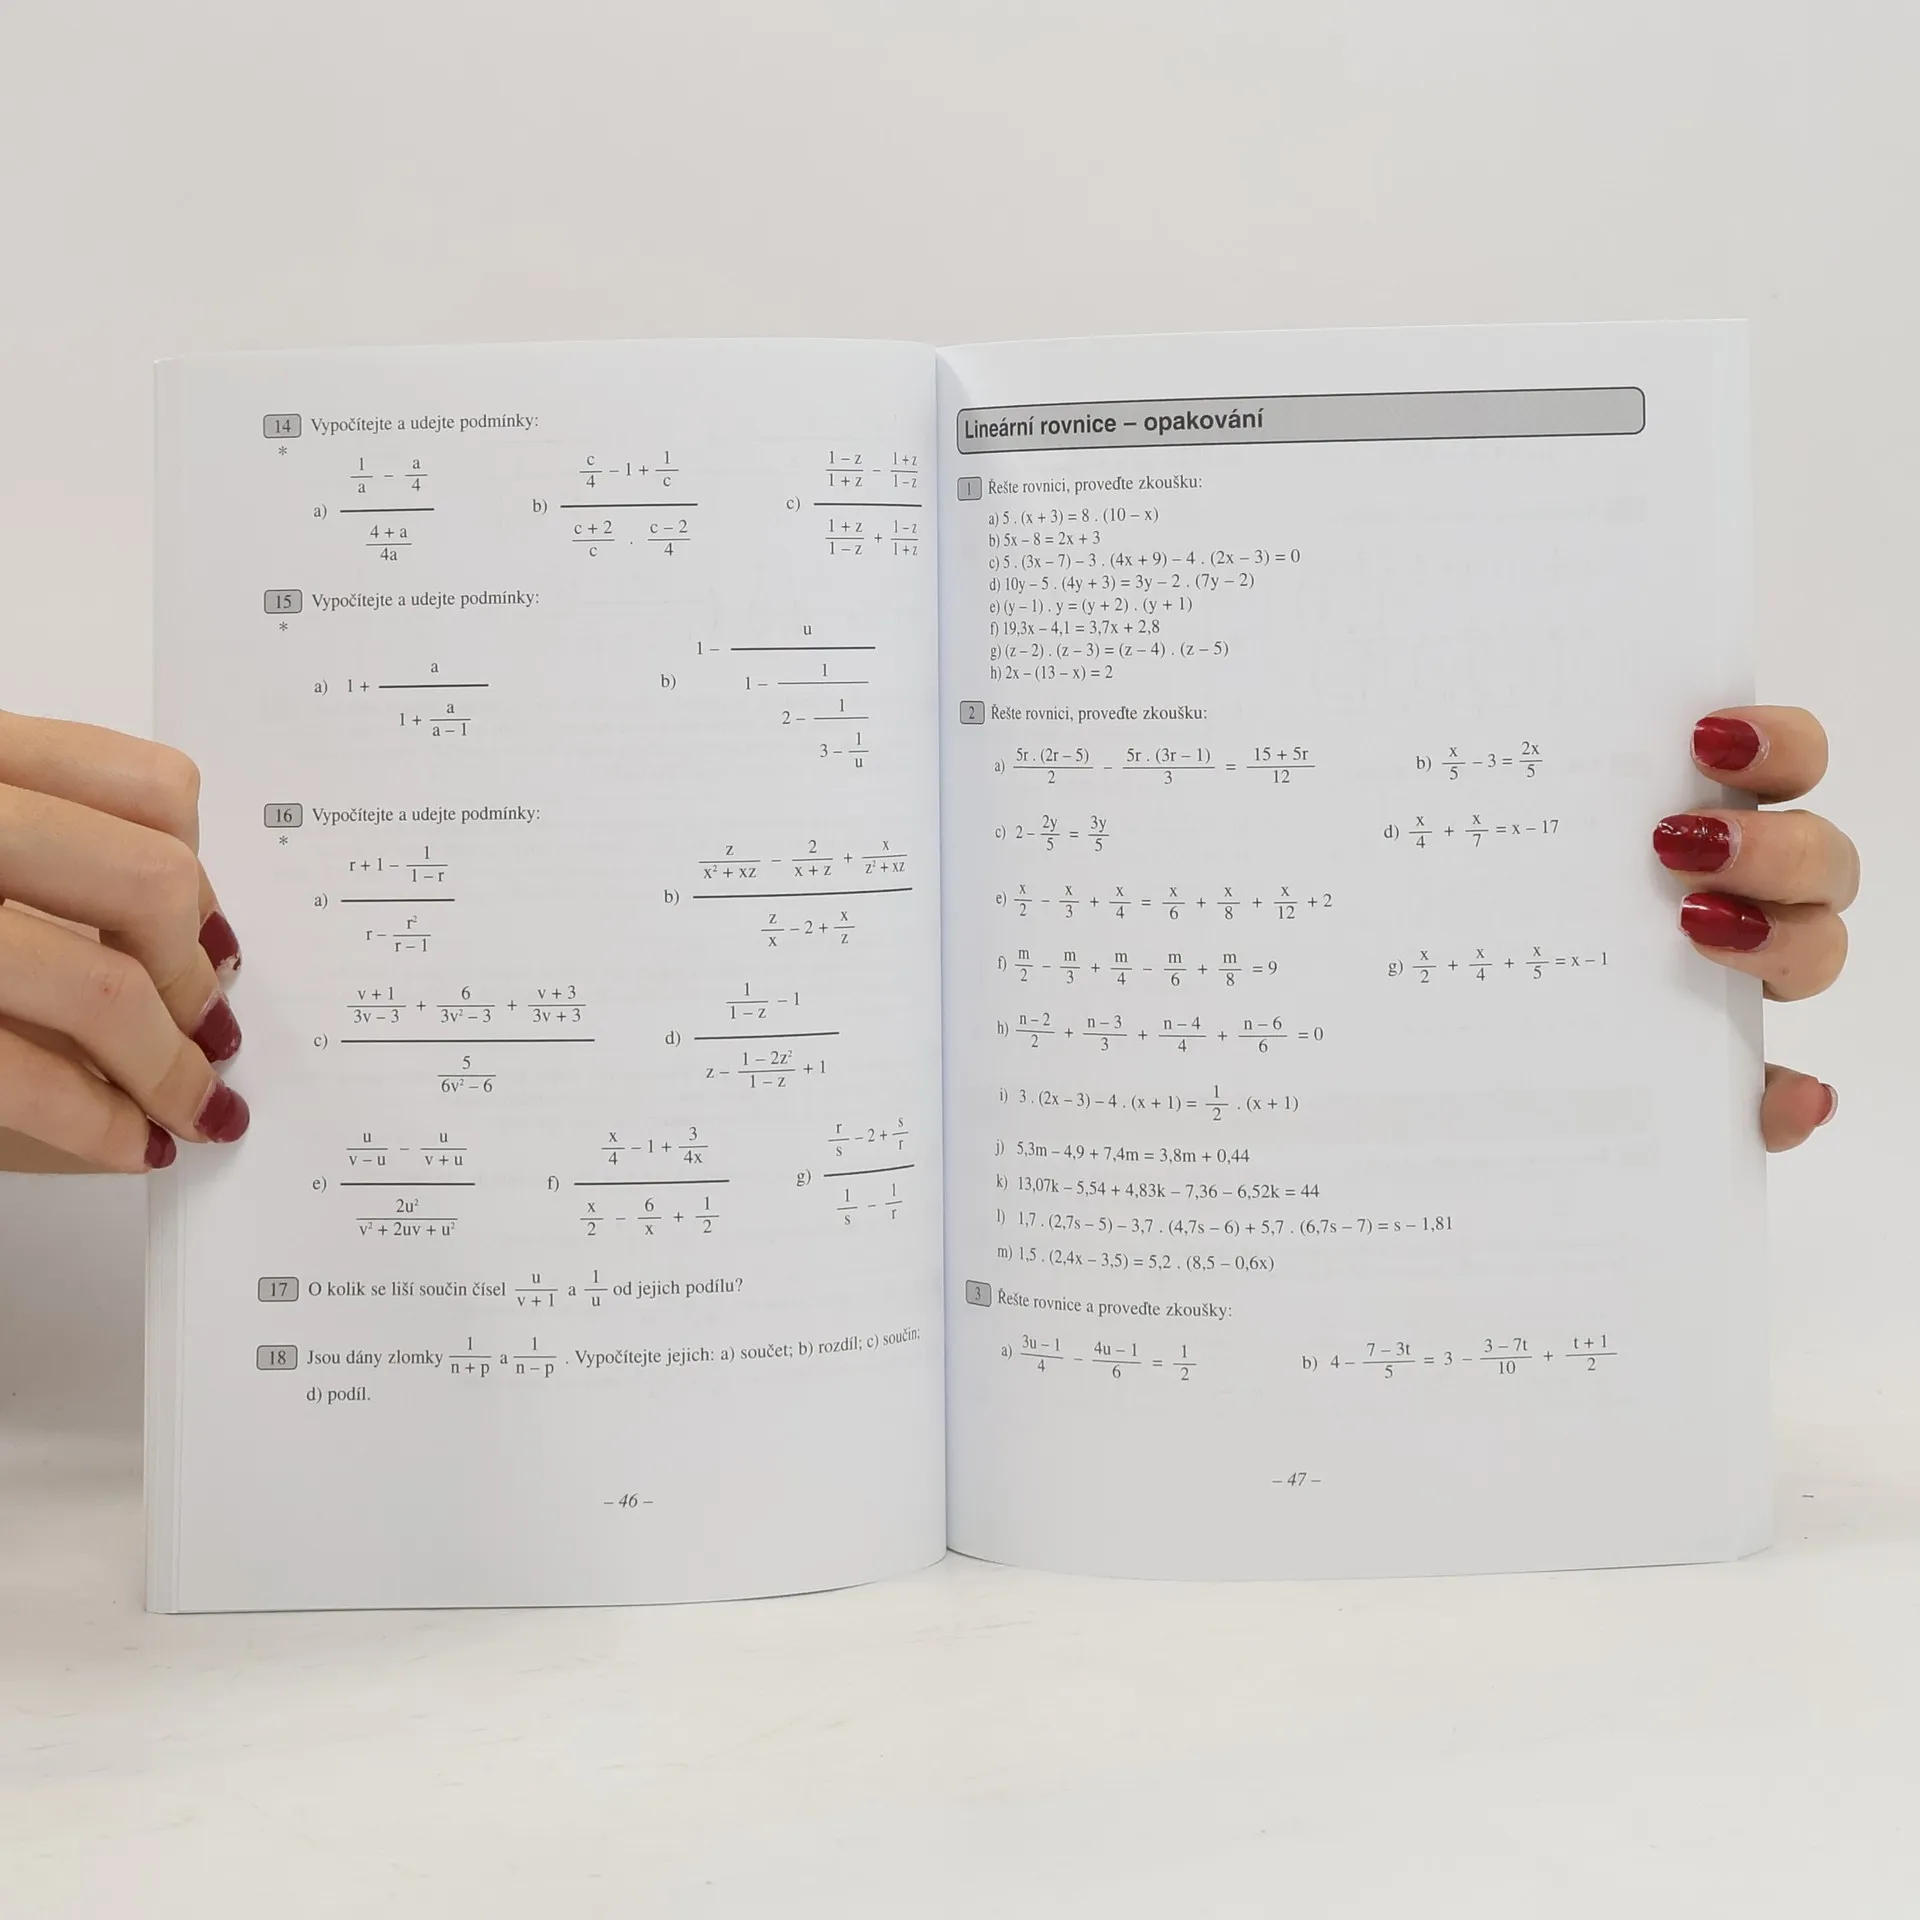 14 Vypočítejte a udejte podmínky:
*
a) (1/a – a/4) / ((4 + a)/4a) b) (c/4 – 1 + 1/c) / ((c + 2)/c . (c – 2)/4) c) ((1 – z)/(1 + z) – (1+z)/(1–z)) / ((1 + z)/(1 – z) + (1–z)/(1+z))
15 Vypočítejte a udejte podmínky:
*
a) 1 + a / (1 + a/(a – 1)) b) 1 – u / (1 – 1 / (2 – 1 / (3 – 1/u)))
16 Vypočítejte a udejte podmínky:
*
a) (r + 1 – 1/(1 – r)) / (r – r²/(r – 1)) b) (z/(x² + xz) – 2/(x + z) + x/(z² + xz)) / (z/x – 2 + x/z)
c) ((v + 1)/(3v – 3) + 6/(3v² – 3) + (v + 3)/(3v + 3)) / (5/(6v² – 6)) d) (1/(1 – z) – 1) / (z – (1 – 2z²)/(1 – z) + 1)
e) (u/(v – u) – u/(v + u)) / (2u²/(v² + 2uv + u²)) f) (x/4 – 1 + 3/4x) / (x/2 – 6/x + 1/2) g) (r/s – 2 + s/r) / (1/s – 1/r)
17 O kolik se liší součin čísel u/(v + 1) a 1/u od jejich podílu?
18 Jsou dány zlomky 1/(n + p) a 1/(n – p) . Vypočítejte jejich: a) součet; b) rozdíl; c) součin;
d) podíl.
– 46 –
Lineární rovnice – opakování
1 Řešte rovnici, proveďte zkoušku:
a) 5 . (x + 3) = 8 . (10 – x)
b) 5x – 8 = 2x + 3
c) 5 . (3x – 7) – 3 . (4x + 9) – 4 . (2x – 3) = 0
d) 10y – 5 . (4y + 3) = 3y – 2 . (7y – 2)
e) (y – 1) . y = (y + 2) . (y + 1)
f) 19,3x – 4,1 = 3,7x + 2,8
g) (z – 2) . (z – 3) = (z – 4) . (z – 5)
h) 2x – (13 – x) = 2
2 Řešte rovnici, proveďte zkoušku:
a) 5r . (2r – 5)/2 – 5r . (3r – 1)/3 = (15 + 5r)/12 b) x/5 – 3 = 2x/5
c) 2 – 2y/5 = 3y/5 d) x/4 + x/7 = x – 17
e) x/2 – x/3 + x/4 = x/6 + x/8 + x/12 + 2
f) m/2 – m/3 + m/4 – m/6 + m/8 = 9 g) x/2 + x/4 + x/5 = x – 1
h) (n – 2)/2 + (n – 3)/3 + (n – 4)/4 + (n – 6)/6 = 0
i) 3 . (2x – 3) – 4 . (x + 1) = 1/2 . (x + 1)
j) 5,3m – 4,9 + 7,4m = 3,8m + 0,44
k) 13,07k – 5,54 + 4,83k – 7,36 – 6,52k = 44
l) 1,7 . (2,7s – 5) – 3,7 . (4,7s – 6) + 5,7 . (6,7s – 7) = s – 1,81
m) 1,5 . (2,4x – 3,5) = 5,2 . (8,5 – 0,6x)
3 Řešte rovnice a proveďte zkoušky:
a) (3u – 1)/4 – (4u – 1)/6 = 1/2 b) 4 – (7 – 3t)/5 = 3 – (3 – 7t)/10 + (t + 1)/2
– 47 –